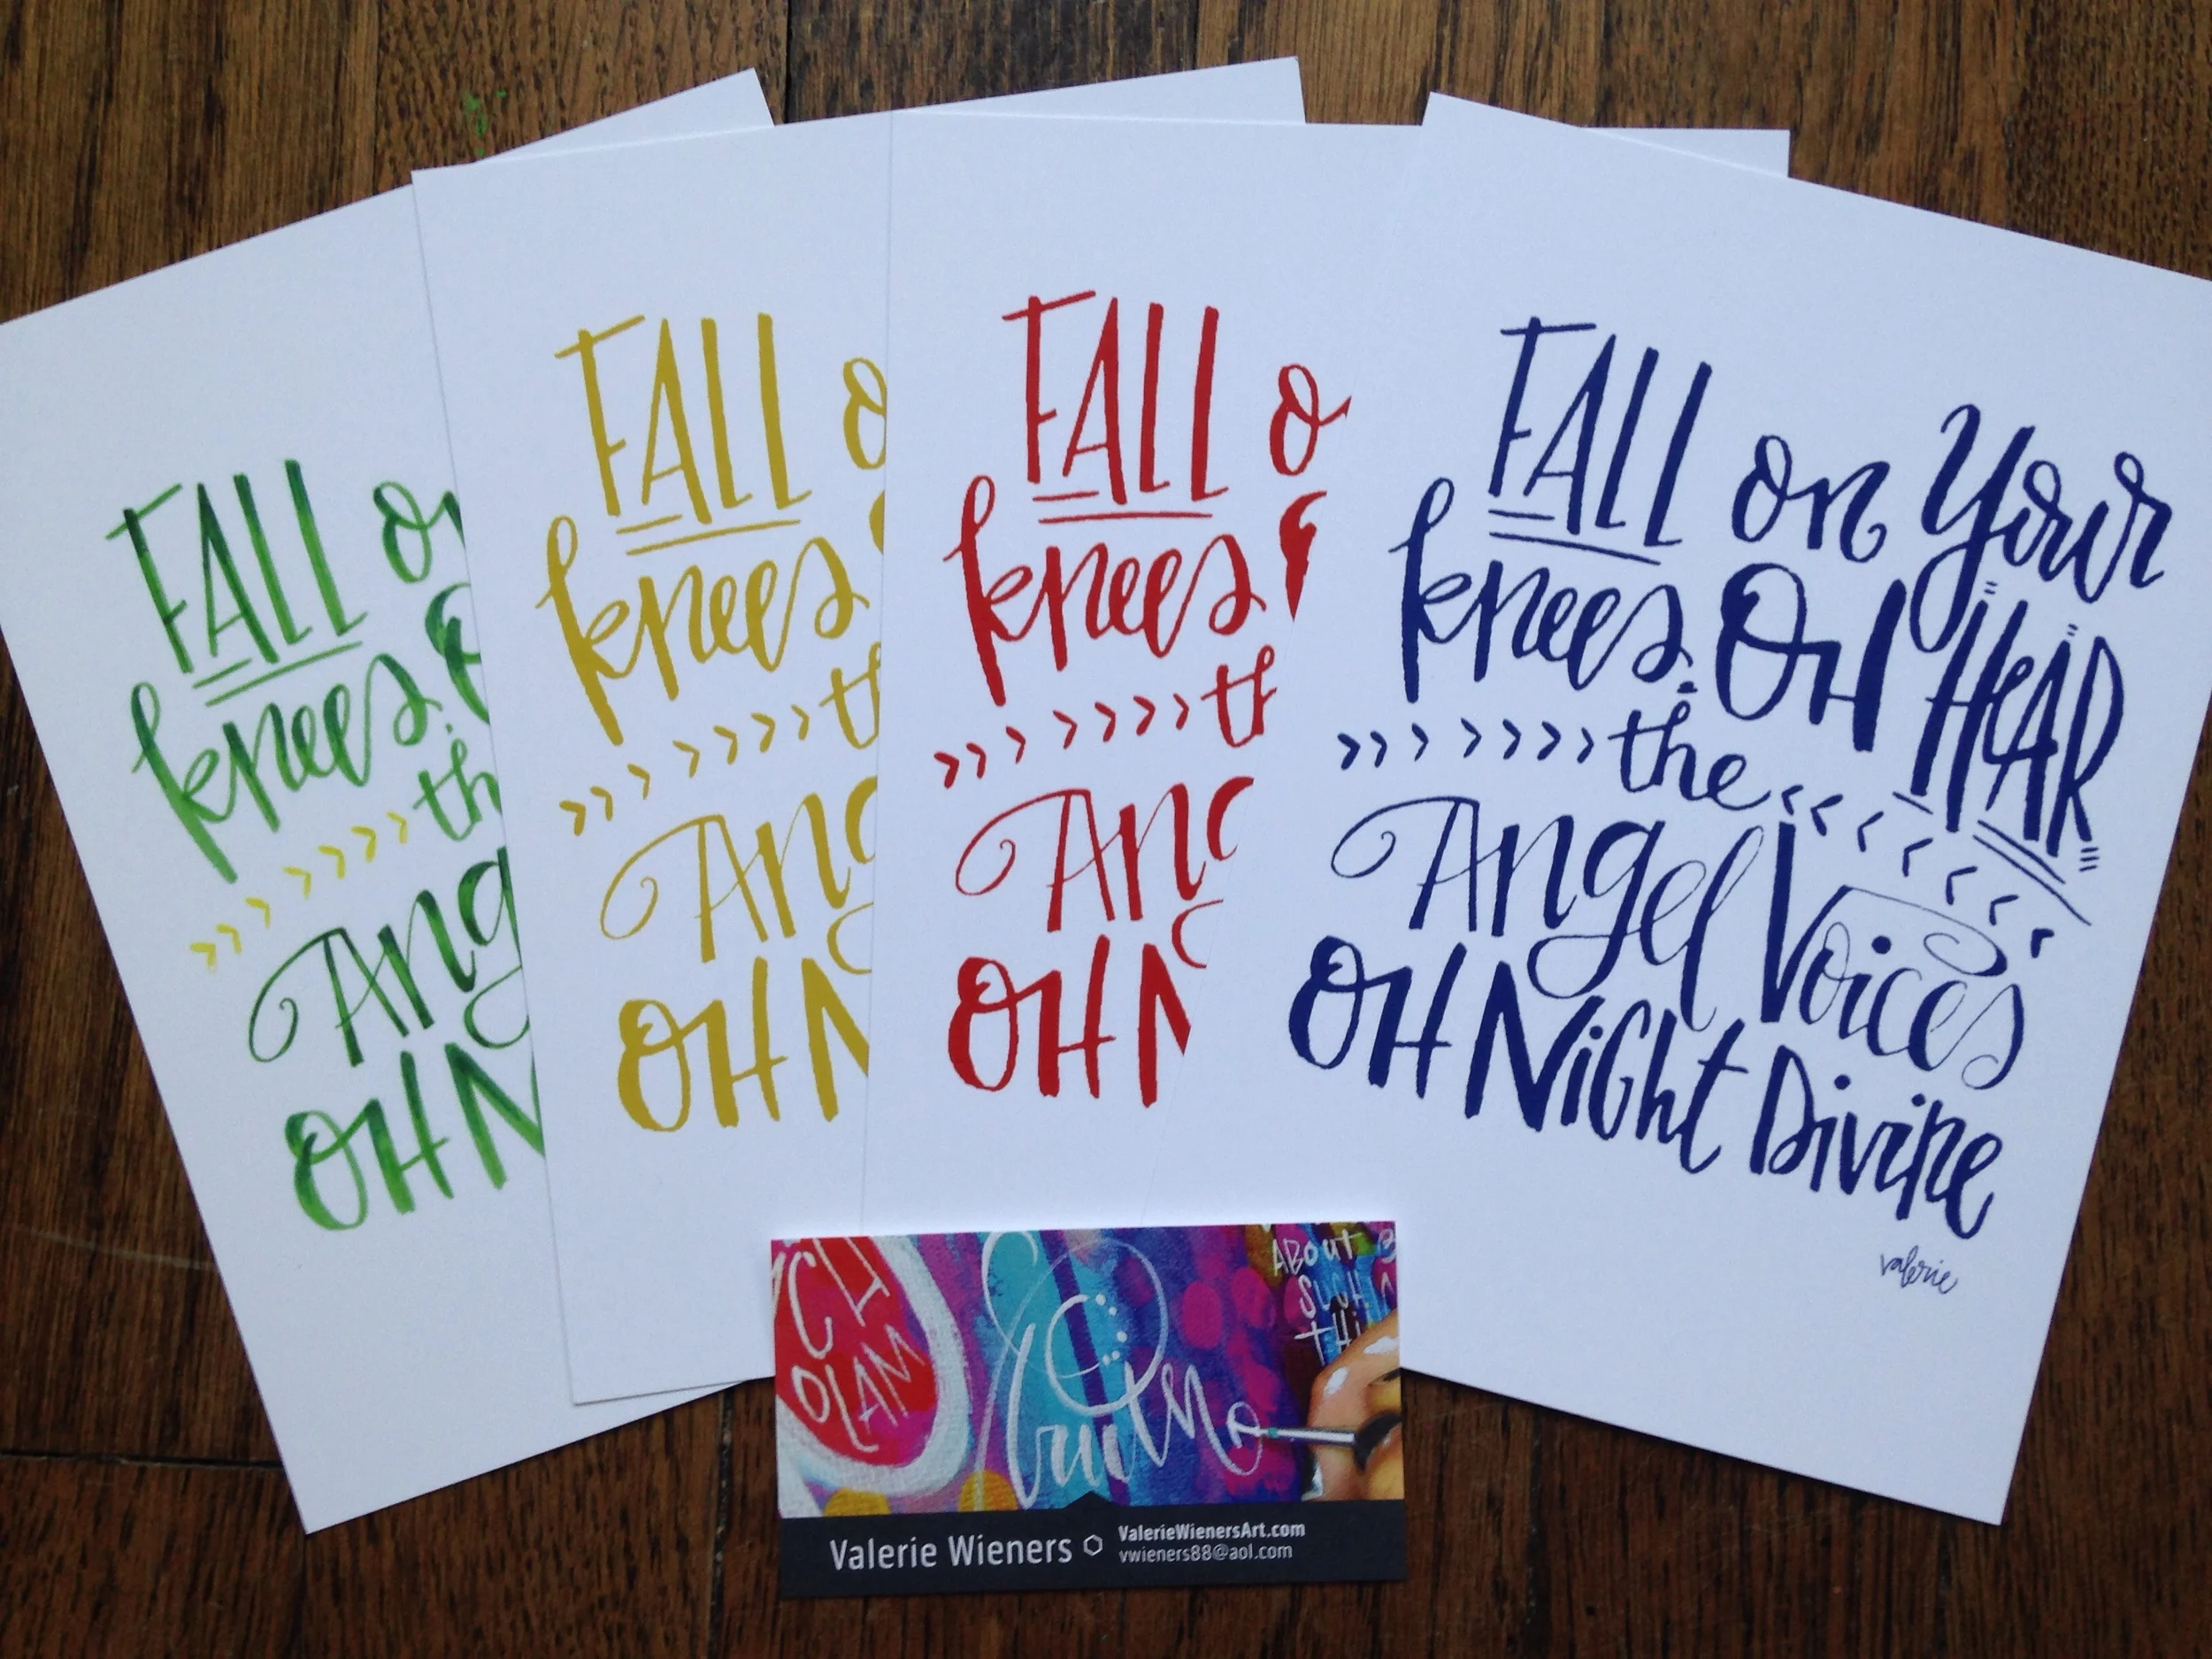 FALL on
knees.
th
Ang
OH N
FALL o
knees
th
Ang
OH N
FALL o
knees
th
Ang
OH N
FALL on Your
knees. OH HeAR
››› ››››› the ‹‹ ‹ ‹ ‹ ‹ ‹ ‹
Angel Voices
OH NiGht Divine
valerie
OLAM
ABOUT
SUCH
THI
Valerie Wieners
ValerieWienersArt.com
vwieners88@aol.com